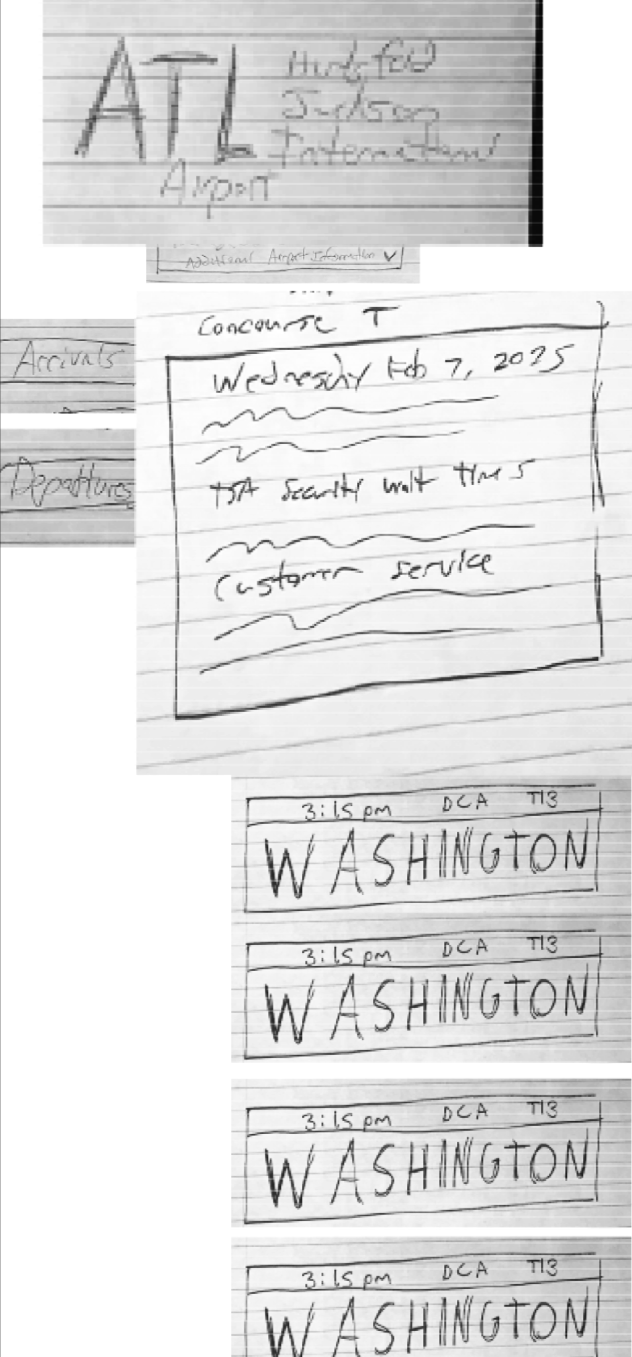 ATL
Airport
International
Additional Airport Information
Concourse T
Arrivals
Wednesday Feb 7, 2025
Departures
TSA Security wait times
Customer service
3:15 pm DCA T13
WASHINGTON
3:15 pm DCA T13
WASHINGTON
3:15 pm DCA T13
WASHINGTON
3:15 pm DCA T13
WASHINGTON